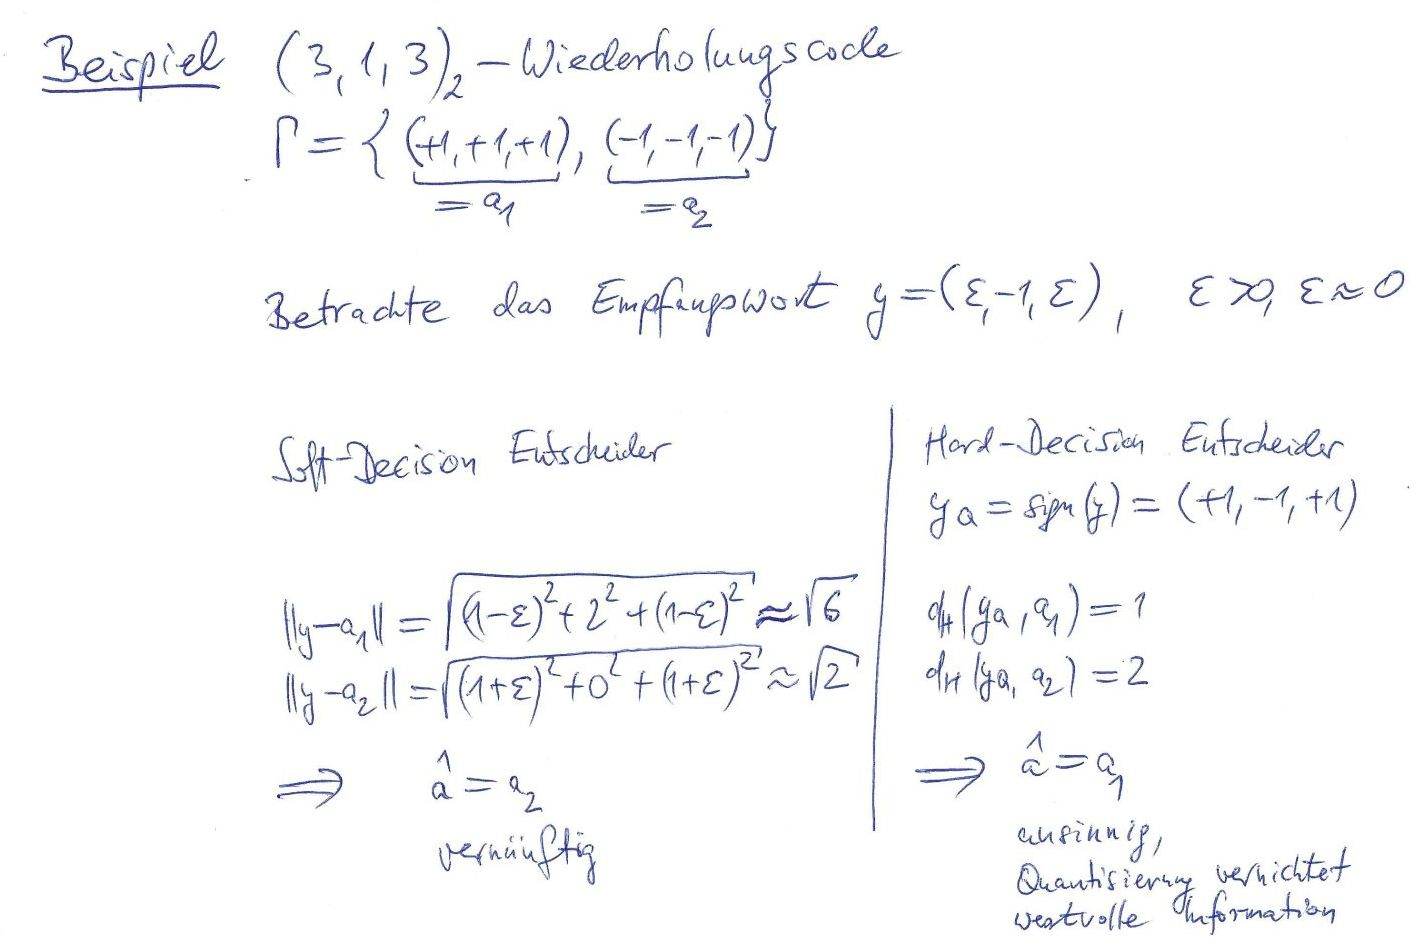 Beispiel (3, 1, 3)₂ – Wiederholungscode
Γ = { (+1, +1, +1), (-1, -1, -1) }
= a₁ = a₂
Betrachte das Empfangswort y = (ε, -1, ε), ε > 0, ε ≈ 0
Soft-Decision Entscheider
‖y-a₁‖ = √((1-ε)² + 2² + (1-ε)²) ≈ √6
‖y-a₂‖ = √((1+ε)² + 0² + (1+ε)²) ≈ √2
⟹ â = a₂
vernünftig
Hard-Decision Entscheider
y_Q = sign(y) = (+1, -1, +1)
d_H(y_Q, a₁) = 1
d_H(y_Q, a₂) = 2
⟹ â = a₁
unsinnig,
Quantisierung vernichtet
wertvolle Information